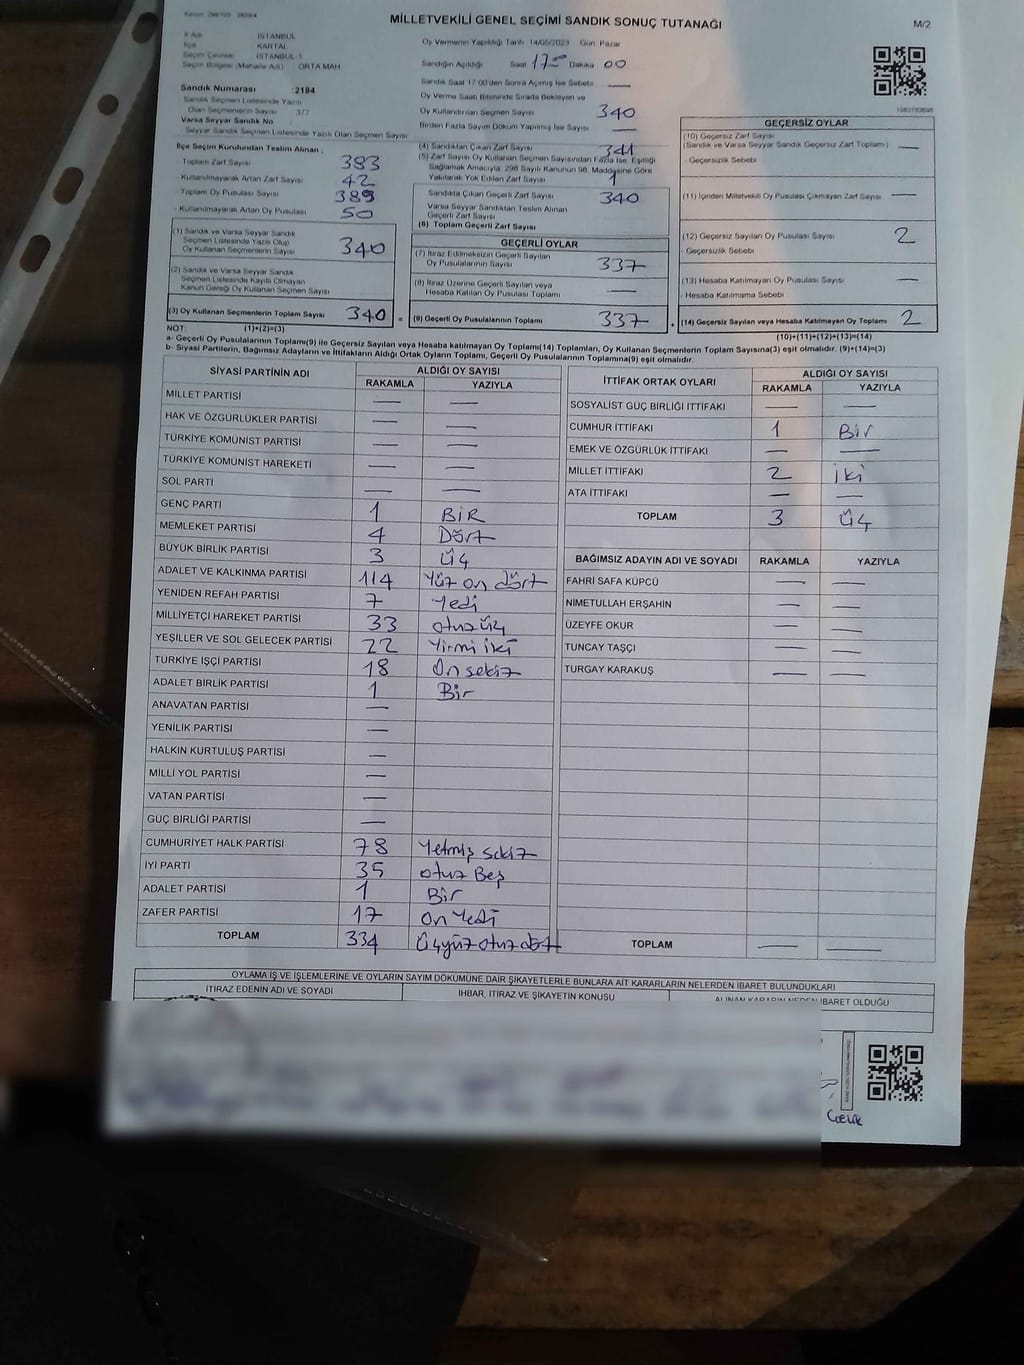 MİLLETVEKİLİ GENEL SEÇİMİ SANDIK SONUÇ TUTANAĞI
M/2
İl Adı : İSTANBUL
İlçe : KARTAL
Seçim Çevresi : İSTANBUL-1
Seçim Bölgesi (Mahalle Adı) : ORTA MAH
Sandık Numarası : 2184
Sandık Seçmen Listesinde Yazılı
Olan Seçmenlerin Sayısı : 377
Varsa Seyyar Sandık No :
Seyyar Sandık Seçmen Listesinde Yazılı Olan Seçmen Sayısı
Oy Vermenin Yapıldığı Tarih 14/05/2023 Gün Pazar
Sandığın Açıldığı Saat 17 Dakika 00
Sandık Saat 17:00'den Sonra Açılmış İse Sebebi —
Oy Verme Saati Bitiminde Sırada Bekleyen ve
Oy Kullandırılan Seçmen Sayısı 340
Birden Fazla Sayım Döküm Yapılmış İse Sayısı —
İlçe Seçim Kurulundan Teslim Alınan ;
- Toplam Zarf Sayısı 383
- Kullanılmayarak Artan Zarf Sayısı 42
- Toplam Oy Pusulası Sayısı 389
- Kullanılmayarak Artan Oy Pusulası 50
(1) Sandık ve Varsa Seyyar Sandık
Seçmen Listesinde Yazılı Olup
Oy Kullanan Seçmenlerin Sayısı 340
(2) Sandık ve Varsa Seyyar Sandık
Seçmen Listesinde Kayıtlı Olmayan
Kanun Gereği Oy Kullanan Seçmen Sayısı
(3) Oy Kullanan Seçmenlerin Toplam Sayısı 340
(4) Sandıktan Çıkan Zarf Sayısı 341
(5) Zarf Sayısı Oy Kullanan Seçmen Sayısından Fazla İse, Eşitliği
Sağlamak Amacıyla, 298 Sayılı Kanunun 98. Maddesine Göre
Yakılarak Yok Edilen Zarf Sayısı 1
Sandıkta Çıkan Geçerli Zarf Sayısı 340
Varsa Seyyar Sandıktan Teslim Alınan
Geçerli Zarf Sayısı
(6) Toplam Geçerli Zarf Sayısı
GEÇERLİ OYLAR
(7) İtiraz Edilmeksizin Geçerli Sayılan
Oy Pusulalarının Sayısı 337
(8) İtiraz Üzerine Geçerli Sayılan veya
Hesaba Katılan Oy Pusulası Toplamı —
(9) Geçerli Oy Pusulalarının Toplamı 337
GEÇERSİZ OYLAR
(10) Geçersiz Zarf Sayısı
(Sandık ve Varsa Seyyar Sandık Geçersiz Zarf Toplamı) —
- Geçersizlik Sebebi
(11) İçinden Milletvekili Oy Pusulası Çıkmayan Zarf Sayısı —
(12) Geçersiz Sayılan Oy Pusulası Sayısı 2
- Geçersizlik Sebebi
(13) Hesaba Katılmayan Oy Pusulası Sayısı —
- Hesaba Katılmama Sebebi
(14) Geçersiz Sayılan veya Hesaba Katılmayan Oy Toplamı 2
NOT: (1)+(2)=(3) (10)+(11)+(12)+(13)=(14)
a- Geçerli Oy Pusulalarının Toplamı(9) ile Geçersiz Sayılan veya Hesaba katılmayan Oy Toplamı(14) Toplamları, Oy Kullanan Seçmenlerin Toplam Sayısına(3) eşit olmalıdır. (9)+(14)=(3)
b- Siyasi Partilerin, Bağımsız Adayların ve İttifakların Aldığı Ortak Oyların Toplamı, Geçerli Oy Pusulalarının Toplamına(9) eşit olmalıdır.
SİYASİ PARTİNİN ADI ALDIĞI OY SAYISI
RAKAMLA YAZIYLA
MİLLET PARTİSİ — —
HAK VE ÖZGÜRLÜKLER PARTİSİ — —
TÜRKİYE KOMÜNİST PARTİSİ — —
TÜRKİYE KOMÜNİST HAREKETİ — —
SOL PARTİ — —
GENÇ PARTİ 1 BİR
MEMLEKET PARTİSİ 4 Dört
BÜYÜK BİRLİK PARTİSİ 3 üç
ADALET VE KALKINMA PARTİSİ 114 Yüz on dört
YENİDEN REFAH PARTİSİ 7 Yedi
MİLLİYETÇİ HAREKET PARTİSİ 33 otuz üç
YEŞİLLER VE SOL GELECEK PARTİSİ 22 Yirmi iki
TÜRKİYE İŞÇİ PARTİSİ 18 On sekiz
ADALET BİRLİK PARTİSİ 1 Bir
ANAVATAN PARTİSİ —
YENİLİK PARTİSİ —
HALKIN KURTULUŞ PARTİSİ —
MİLLİ YOL PARTİSİ —
VATAN PARTİSİ —
GÜÇ BİRLİĞİ PARTİSİ —
CUMHURİYET HALK PARTİSİ 78 Yetmiş sekiz
İYİ PARTİ 35 otuz Beş
ADALET PARTİSİ 1 Bir
ZAFER PARTİSİ 17 On Yedi
TOPLAM 334 Üçyüz otuz dört
İTTİFAK ORTAK OYLARI ALDIĞI OY SAYISI
RAKAMLA YAZIYLA
SOSYALİST GÜÇ BİRLİĞİ İTTİFAKI — —
CUMHUR İTTİFAKI 1 Bir
EMEK VE ÖZGÜRLÜK İTTİFAKI — —
MİLLET İTTİFAKI 2 iki
ATA İTTİFAKI — —
TOPLAM 3 üç
BAĞIMSIZ ADAYIN ADI VE SOYADI RAKAMLA YAZIYLA
FAHRİ SAFA KÜPCÜ — —
NİMETULLAH ERŞAHİN — —
ÜZEYFE OKUR — —
TUNCAY TAŞÇI — —
TURGAY KARAKUŞ — —
TOPLAM — —
OYLAMA İŞ VE İŞLEMLERİNE VE OYLARIN SAYIM DÖKÜMÜNE DAİR ŞİKAYETLERLE BUNLARA AİT KARARLARIN NELERDEN İBARET BULUNDUKLARI
İTİRAZ EDENİN ADI VE SOYADI İHBAR, İTİRAZ VE ŞİKAYETİN KONUSU ALINAN KARARIN NEDEN İBARET OLDUĞU